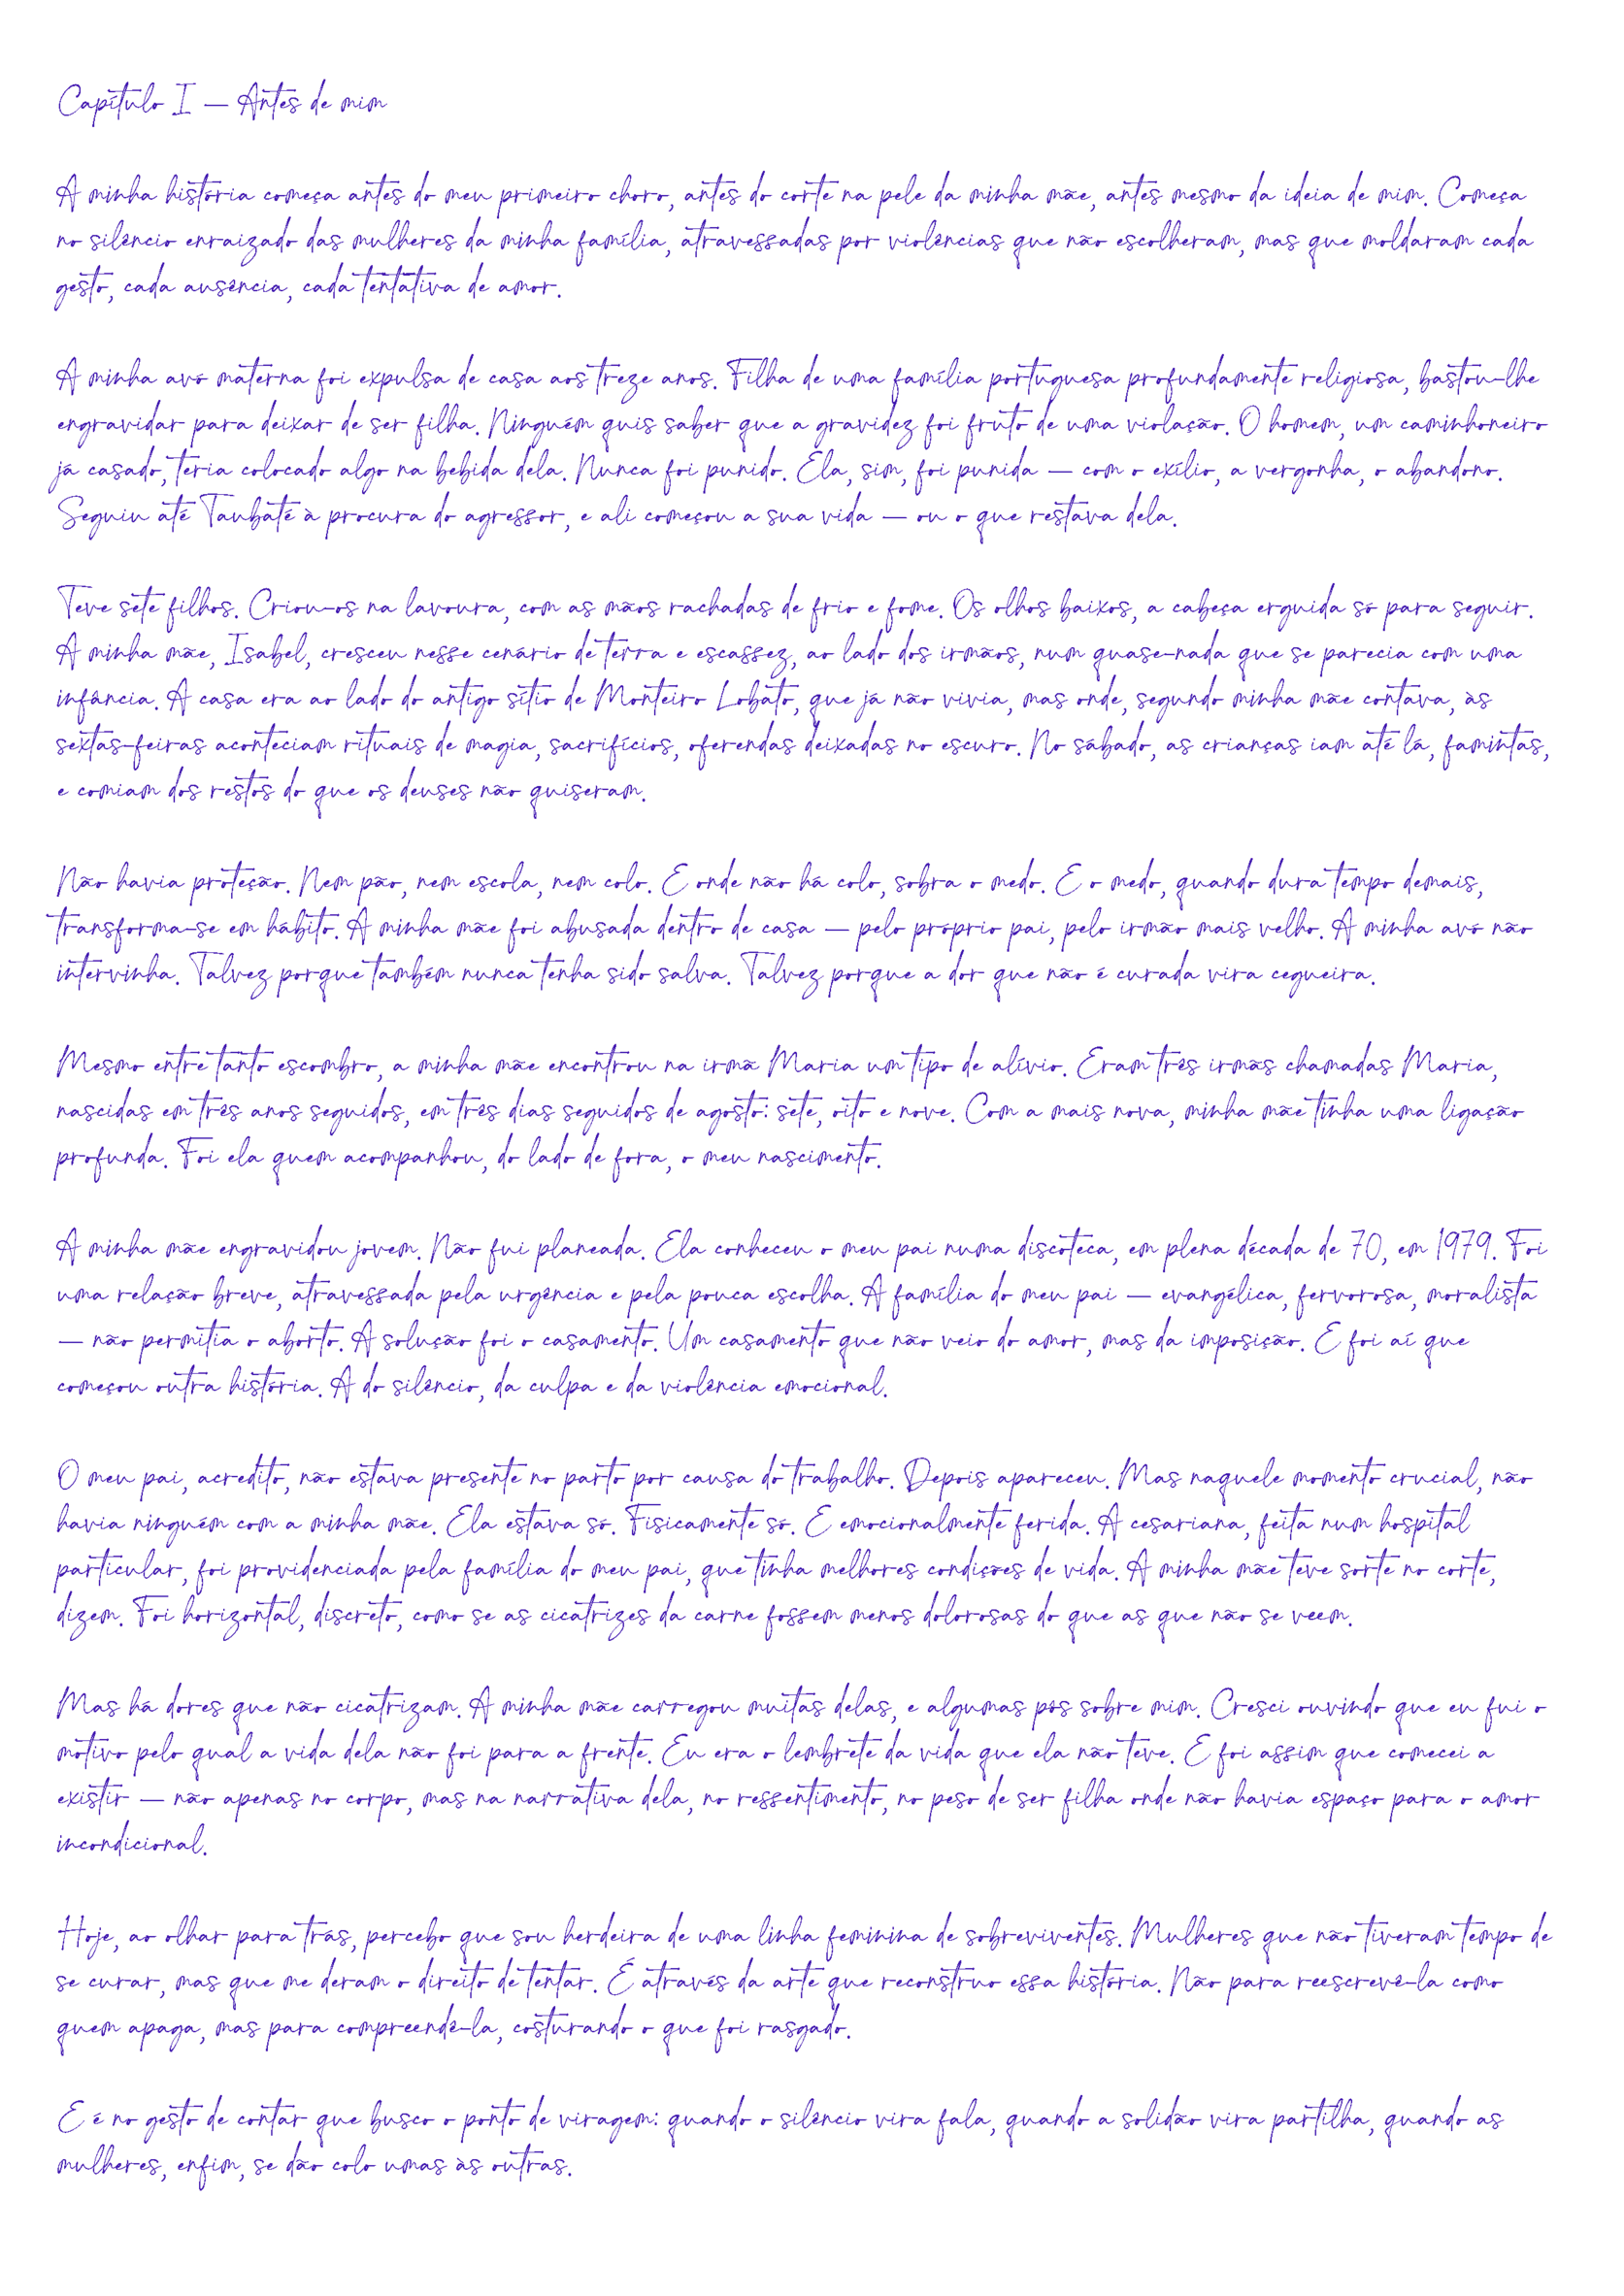 Capítulo I — Antes de mim
A minha história começa antes do meu primeiro choro, antes do corte na pele da minha mãe, antes mesmo da ideia de mim. Começa
no silêncio enraizado das mulheres da minha família, atravessadas por violências que não escolheram, mas que moldaram cada
gesto, cada ausência, cada tentativa de amor.
A minha avó materna foi expulsa de casa aos treze anos. Filha de uma família portuguesa profundamente religiosa, bastou-lhe
engravidar para deixar de ser filha. Ninguém quis saber que a gravidez foi fruto de uma violação. O homem, um caminhoneiro
já casado, teria colocado algo na bebida dela. Nunca foi punido. Ela, sim, foi punida — com o exílio, a vergonha, o abandono.
Seguiu até Taubaté à procura do agressor, e ali começou a sua vida — ou o que restava dela.
Teve sete filhos. Criou-os na lavoura, com as mãos rachadas de frio e fome. Os olhos baixos, a cabeça erguida só para seguir.
A minha mãe, Isabel, cresceu nesse cenário de terra e escassez, ao lado dos irmãos, num quase-nada que se parecia com uma
infância. A casa era ao lado do antigo sítio de Monteiro Lobato, que já não vivia, mas onde, segundo minha mãe contava, às
sextas-feiras aconteciam rituais de magia, sacrifícios, oferendas deixadas no escuro. No sábado, as crianças iam até lá, famintas,
e comiam dos restos do que os deuses não quiseram.
Não havia proteção. Nem pão, nem escola, nem colo. E onde não há colo, sobra o medo. E o medo, quando dura tempo demais,
transforma-se em hábito. A minha mãe foi abusada dentro de casa — pelo próprio pai, pelo irmão mais velho. A minha avó não
intervinha. Talvez porque também nunca tenha sido salva. Talvez porque a dor que não é curada vira cegueira.
Mesmo entre tanto escombro, a minha mãe encontrou na irmã Maria um tipo de alívio. Eram três irmãs chamadas Maria,
nascidas em três anos seguidos, em três dias seguidos de agosto: sete, oito e nove. Com a mais nova, minha mãe tinha uma ligação
profunda. Foi ela quem acompanhou, do lado de fora, o meu nascimento.
A minha mãe engravidou jovem. Não fui planeada. Ela conheceu o meu pai numa discoteca, em plena década de 70, em 1979. Foi
uma relação breve, atravessada pela urgência e pela pouca escolha. A família do meu pai — evangélica, fervorosa, moralista
— não permitia o aborto. A solução foi o casamento. Um casamento que não veio do amor, mas da imposição. E foi aí que
começou outra história. A do silêncio, da culpa e da violência emocional.
O meu pai, acredito, não estava presente no parto por causa do trabalho. Depois apareceu. Mas naquele momento crucial, não
havia ninguém com a minha mãe. Ela estava só. Fisicamente só. E emocionalmente ferida. A cesariana, feita num hospital
particular, foi providenciada pela família do meu pai, que tinha melhores condições de vida. A minha mãe teve sorte no corte,
dizem. Foi horizontal, discreto, como se as cicatrizes da carne fossem menos dolorosas do que as que não se veem.
Mas há dores que não cicatrizam. A minha mãe carregou muitas delas, e algumas pôs sobre mim. Cresci ouvindo que eu fui o
motivo pelo qual a vida dela não foi para a frente. Eu era o lembrete da vida que ela não teve. E foi assim que comecei a
existir — não apenas no corpo, mas na narrativa dela, no ressentimento, no peso de ser filha onde não havia espaço para o amor
incondicional.
Hoje, ao olhar para trás, percebo que sou herdeira de uma linha feminina de sobreviventes. Mulheres que não tiveram tempo de
se curar, mas que me deram o direito de tentar. É através da arte que reconstruo essa história. Não para reescrevê-la como
quem apaga, mas para compreendê-la, costurando o que foi rasgado.
E é no gesto de contar que busco o ponto de viragem: quando o silêncio vira fala, quando a solidão vira partilha, quando as
mulheres, enfim, se dão colo umas às outras.